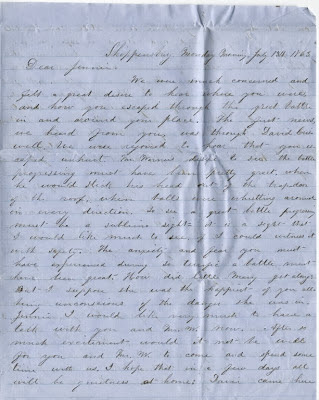 Shippensburg Monday Morning July 13th 1863
Dear Jennie
We were much concerned and
felt a great desire to hear where you were
and how you escaped through the great battle
in and around your place. The first news
we heard from you was through David
well. We were rejoiced to hear that you es
caped unhurt. Mr. desire to see the battle
progressing must have been pretty great, when
he would stick his head out of the trapdoor
of the roof, when balls were whistling around
in every direction. To see a great battle progressing
must be a sublime sight - it is a sight that
I would like much to see if I could witness it
in safety. The anxiety and fear you must
have experienced during such a battle must
have been great. How did little Mary get along
But I suppose she was the happiest of you all
being unconscious of the danger she was in.
Jennie I would like very much to have a
talk with you and Mr. W. now. After so
much excitement would it not be well
for you and Mr. W. to come and spend some
time with us. I hope that in a few days all
will be quietness at home. David came here